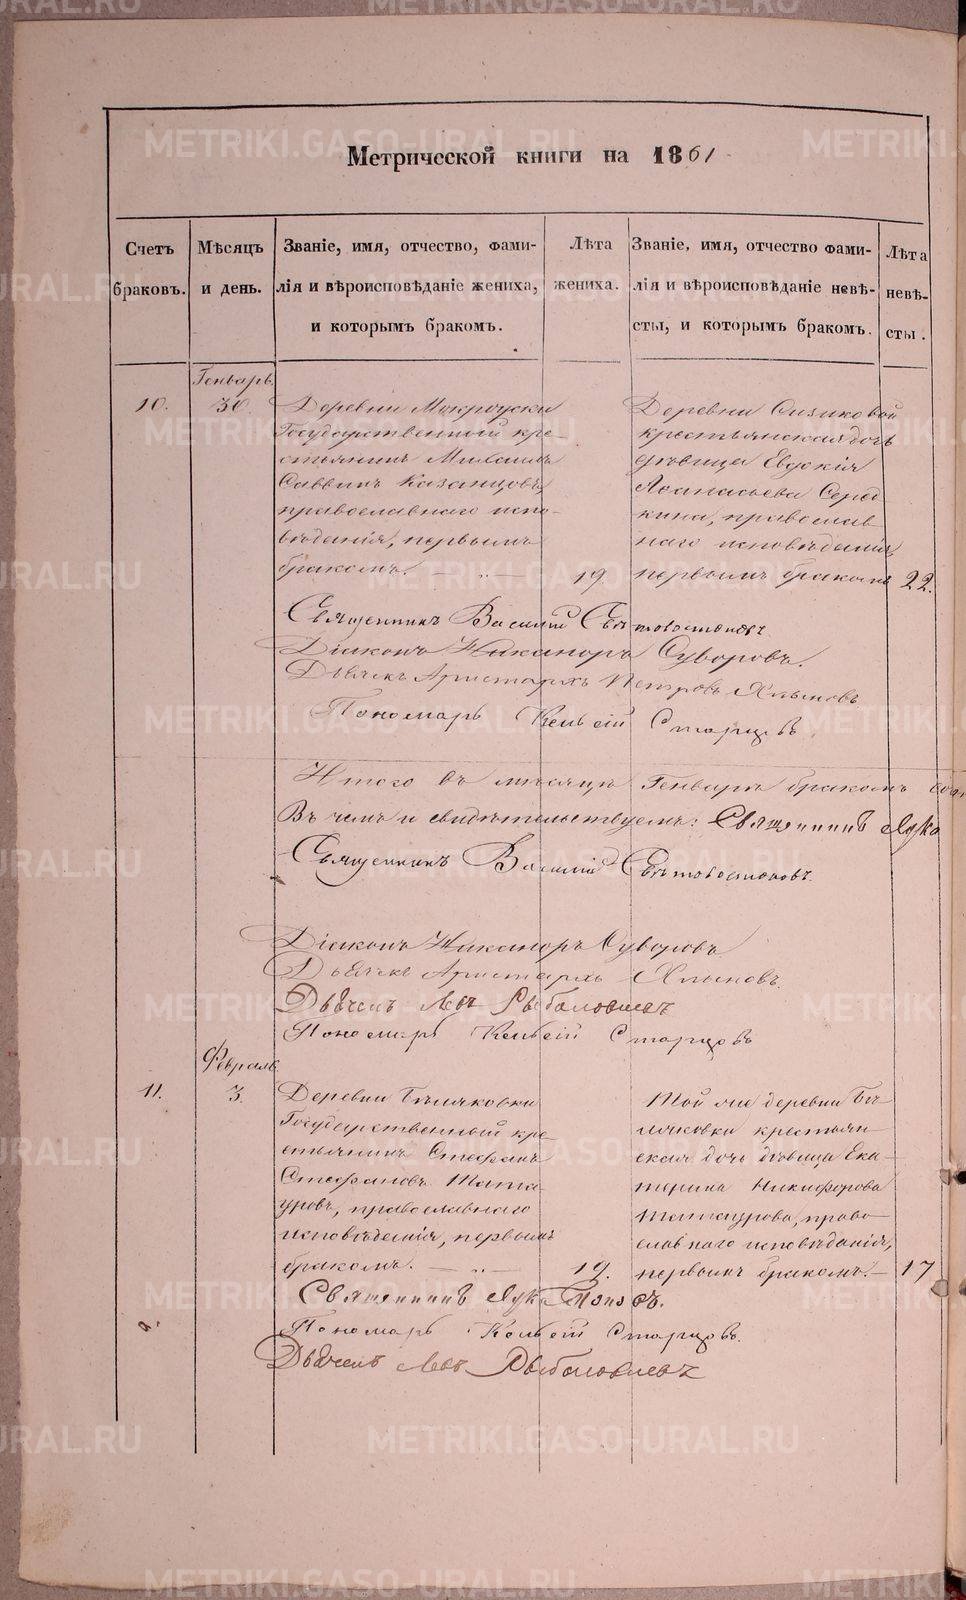 Метрической книги на 1861
Счетъ браковъ.
Мѣсяцъ и день.
Званіе, имя, отчество, фами-
лія и вѣроисповѣданіе жениха,
и которымъ бракомъ.
Лѣта жениха.
Званіе, имя, отчество фами-
лія и вѣроисповѣданіе невѣ-
сты, и которымъ бракомъ.
Лѣта невѣ-
сты.
Генварь.
10.
30.
Деревни
Государственный кре-
стьянинъ Михаилъ
Саввинъ Казанцовъ,
православнаго испо-
вѣданія, первымъ
бракомъ.
19.
Деревни Сизиковой
крестьянская дочь
дѣвица Евдокія
Аѳанасьева Серед
кина, православ
наго исповѣданія,
первымъ бракомъ
22.
Священникъ Василій
Діаконъ Никаноръ Суворовъ.
Дьячекъ Аристархъ Петровъ Хлыновъ
Пономарь Старцовъ
Итого въ мѣсяцѣ Генварѣ бракомъ
Въ чемъ и свидѣтельствуемъ: Священникъ Лука
Священникъ Василій
Діаконъ Никаноръ Суворовъ
Дьячекъ Аристархъ Хлыновъ.
Дьячекъ Левъ Рыболовлевъ
Пономарь Старцовъ
Февраль.
11.
3.
Деревни Бѣляковки
Государственный кре
стьянинъ Стефанъ
Стефановъ Тата-
уровъ, православнаго
исповѣданія, первымъ
бракомъ.
19.
Той же деревни Бѣ
ляковки крестьян-
ская дочь дѣвица Ека-
терина Никифорова
Татаурова, право-
славнаго исповѣданія,
первымъ бракомъ.
17
Священникъ Лука Поповъ.
Пономарь Старцовъ.
Дьячекъ Левъ Рыболовлевъ
METRIKI.GASO-URAL.RU